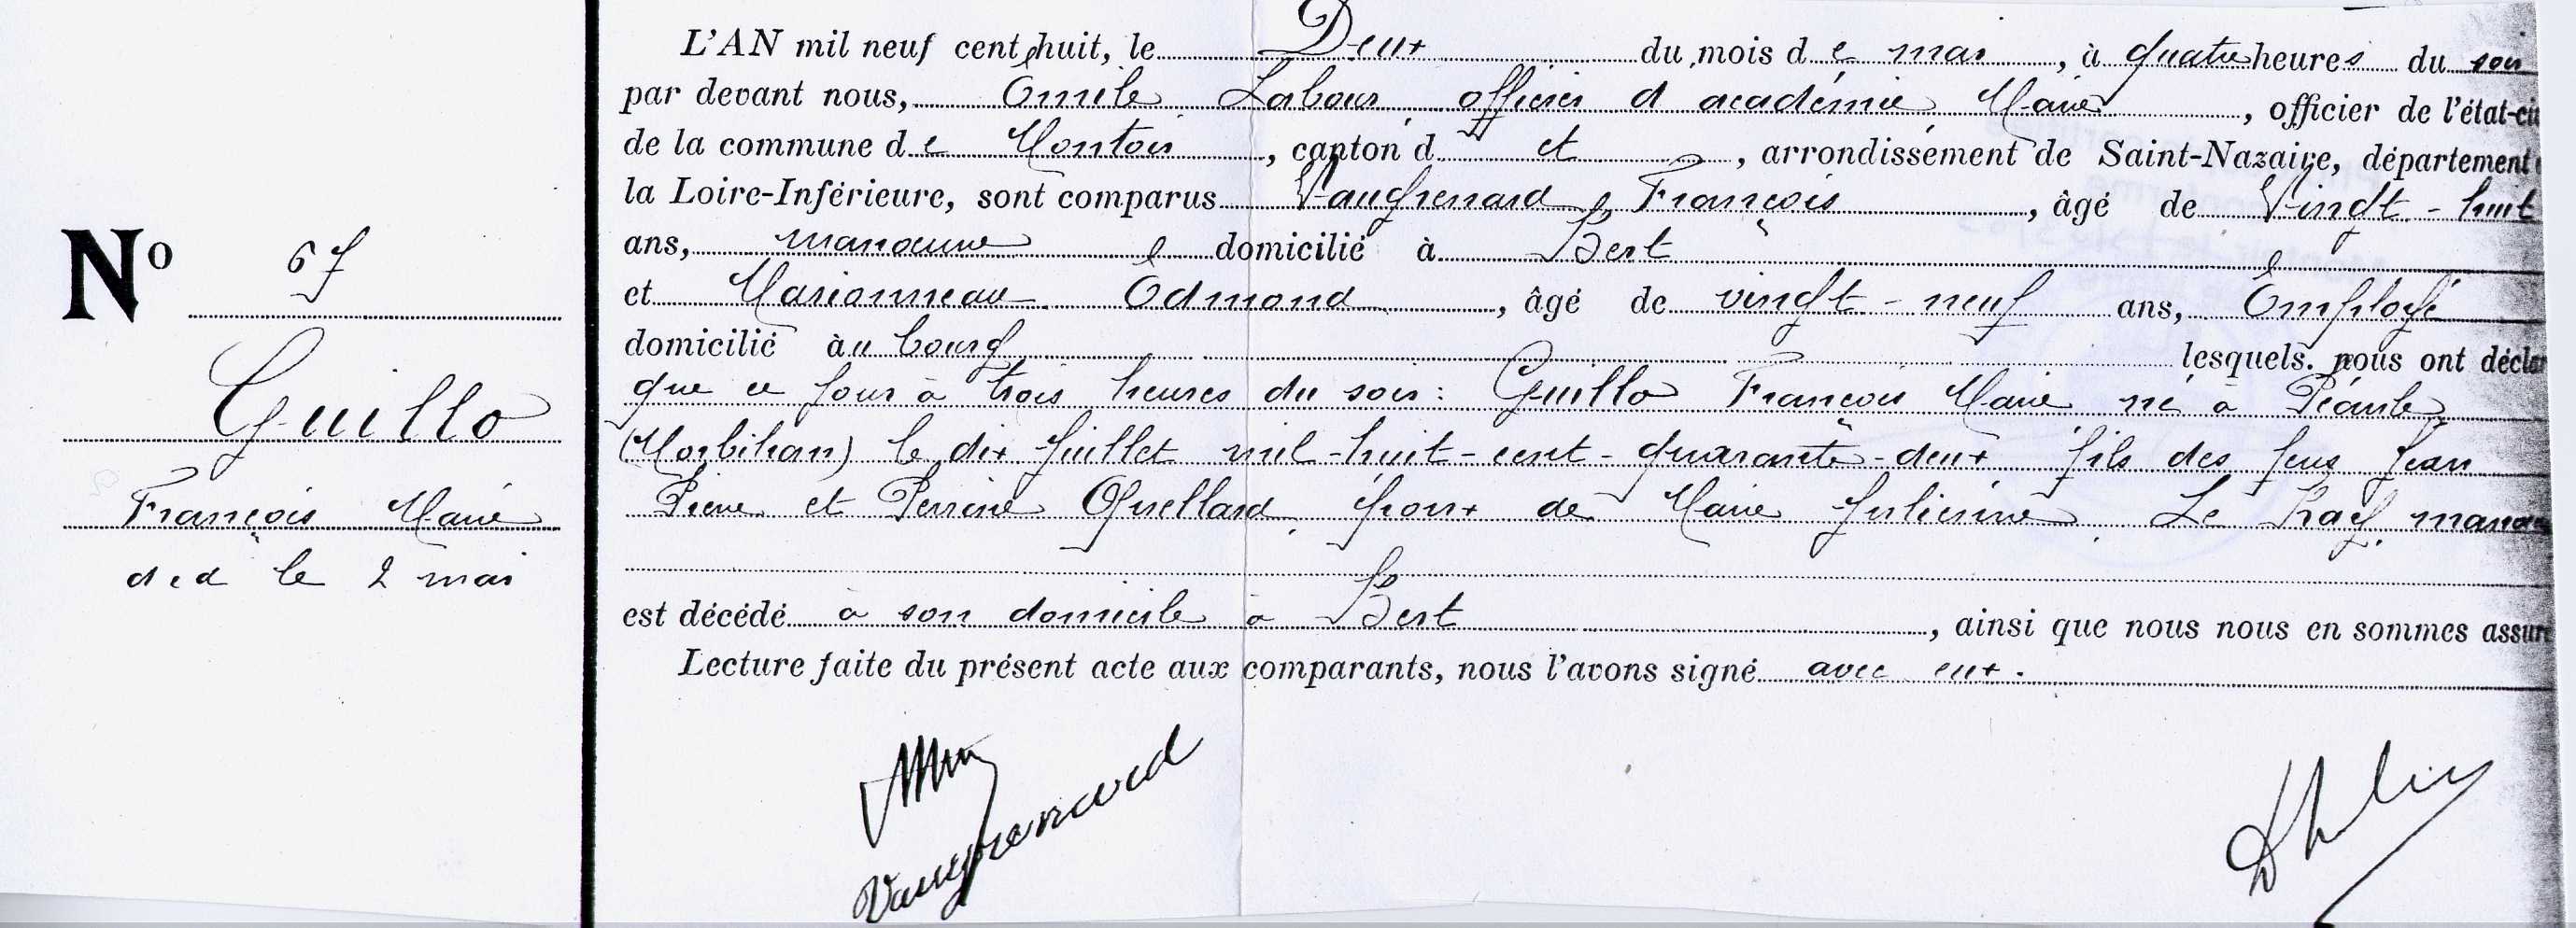 L'AN mil neuf cent huit, le Deux du mois de mai, à quatre heures du soir
par devant nous, Émile Labour officier d académie Maire, officier de l'état-ci
de la commune de Montoir, canton d et, arrondissement de Saint-Nazaire, département
la Loire-Inférieure, sont comparus Vaugrenard François, âgé de Vingt-huit
ans, manœuvre domicilié à Bert
et Marionneau Edmond, âgé de vingt-neuf ans, Employé
domicilié au bourg lesquels nous ont décla
que ce jour à trois heures du soir : Guillo François Marie né à Péaule
(Morbihan) le dix juillet mil-huit-cent-quarante-deux fils des feus Jean
Pierre et Perrine Quellard, époux de Marie Julienne Le Ray, manœ
est décédé à son domicile à Bert, ainsi que nous nous en sommes assur
Lecture faite du présent acte aux comparants, nous l'avons signé avec eux.
Vaugrenard
No 67
Guillo
François Marie
déd le 2 mai